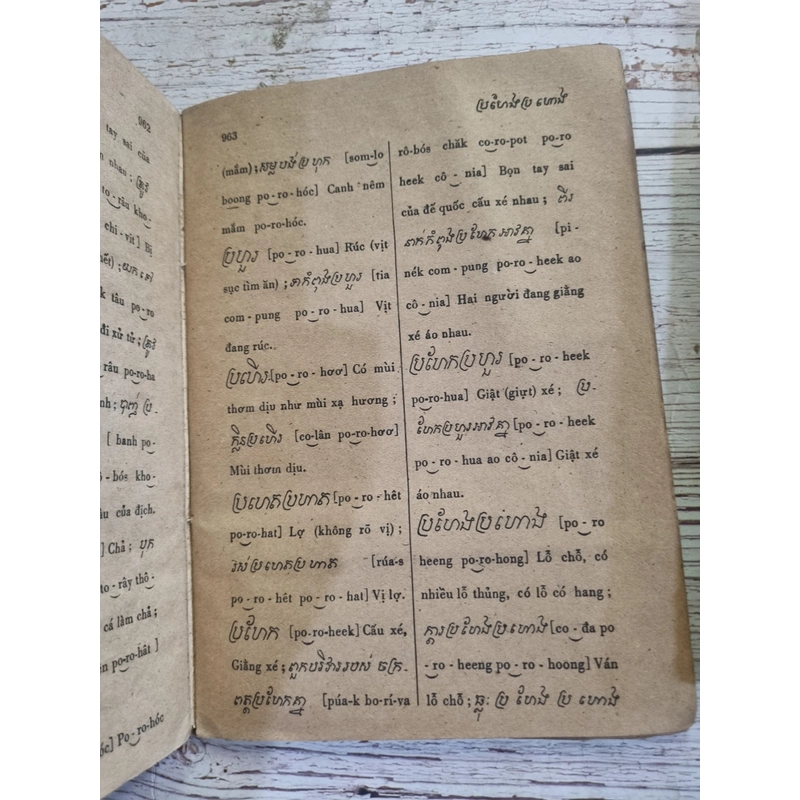 962
tay sai của
n nhau ;
to - râu kho-
chi - vit] Bị
k tâu po - ro
đi xử tử ;
râu po-ro-ha
[ banh po-
- bós kho-
âu của địch.
] Chả ; បុក
to - rây thô-
cá làm chả ;
en po-ro-hât ]
óc] Po - ro-hóc
963
(mắm) ; សម្លបង់ប្រហុក [som-lo
boong po - ro - hóc] Canh nêm
mắm po-ro-hóc.
ប្រហួរ [po - ro - hua] Rúc (vịt
sục tìm ăn) ; ទាកំពុងប្រហួរ [tia
com - pung po - ro - hua] Vịt
đang rúc.
ប្រហើរ [po - ro - hơơ] Có mùi
thơm dịu như mùi xạ hương ;
ក្លិនប្រហើរ [co-lân po-ro-hơơ]
Mùi thơm dịu.
ប្រហេតប្រហាត [po - ro - hêt
po-ro-hat] Lợ (không rõ vị) ;
រស់ប្រហេតប្រហាត [rúa-s
po - ro - hêt po - ro - hat] Vị lợ.
ប្រហែក [po-ro-heek] Cấu xé,
Giằng xé ; ពួកបរិវាររបស់ ចក្រ-
ពត្តប្រហែកគ្នា [púa-k bo-rí-va
ប្រហែងប្រហោង
rô-bós chăk co-ro-pot po-ro
heek cô - nia] Bọn tay sai
của đế quốc cấu xé nhau ; ពីរ
នាក់កំពុងប្រហែកអាវគ្នា [pi-
nék com - pung po-ro - heek ao
cô - nia] Hai người đang giằng
xé áo nhau.
ប្រហែកប្រហួរ [po - ro - heek
po-ro-hua] Giật (giựt) xé ; ប្រ-
ហែកប្រហួរអាវគ្នា [po - ro - heek
po - ro - hua ao cô - nia] Giật xé
áo nhau.
ប្រហែងប្រហោង [po - ro
heeng po-ro-hong] Lỗ chỗ, có
nhiều lỗ thủng, có lỗ có hang ;
ក្តារប្រហែងប្រហោង [co - đa po
- ro - heeng po - ro - hoong] Ván
lỗ chỗ ; ឆ្លុះ ប្រហែង ប្រហោង